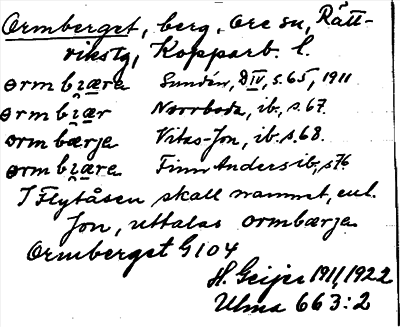 Ormberget, berg, Ore sn, Rätt-
vikstg, Kopparb. l.
ormbi̯æra Sundén, DIV, s. 65, 1911
ormbi̯ær Norrboda, ib., s. 67.
ormbærja Vitas-Jon, ib. s. 68.
ormbi̯æra Finn Anders ib., s. 76.
I Flytåsen skall namnet, enl.
Jon, uttalas ormbærja
Ormberget G 104
H. Geijer 1911, 1922
Ulma 663:2